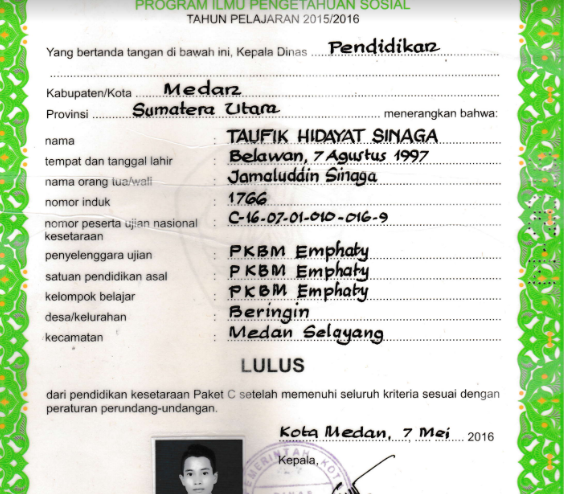 PROGRAM ILMU PENGETAHUAN SOSIAL
TAHUN PELAJARAN 2015/2016
Yang bertanda tangan di bawah ini, Kepala Dinas Pendidikan
Kabupaten/Kota Medan
Provinsi Sumatera Utara menerangkan bahwa:
nama : TAUFIK HIDAYAT SINAGA
tempat dan tanggal lahir : Belawan, 7 Agustus 1997
nama orang tua/wali : Jamaluddin Sinaga
nomor induk : 1766
nomor peserta ujian nasional : C-16-07-01-010-016-9
kesetaraan
penyelenggara ujian : PKBM Emphaty
satuan pendidikan asal : PKBM Emphaty
kelompok belajar : PKBM Emphaty
desa/kelurahan : Beringin
kecamatan : Medan Selayang
LULUS
dari pendidikan kesetaraan Paket C setelah memenuhi seluruh kriteria sesuai dengan
peraturan perundang-undangan.
Kota Medan, 7 Mei 2016
Kepala,
PEMERINTAH KOTA
DINAS